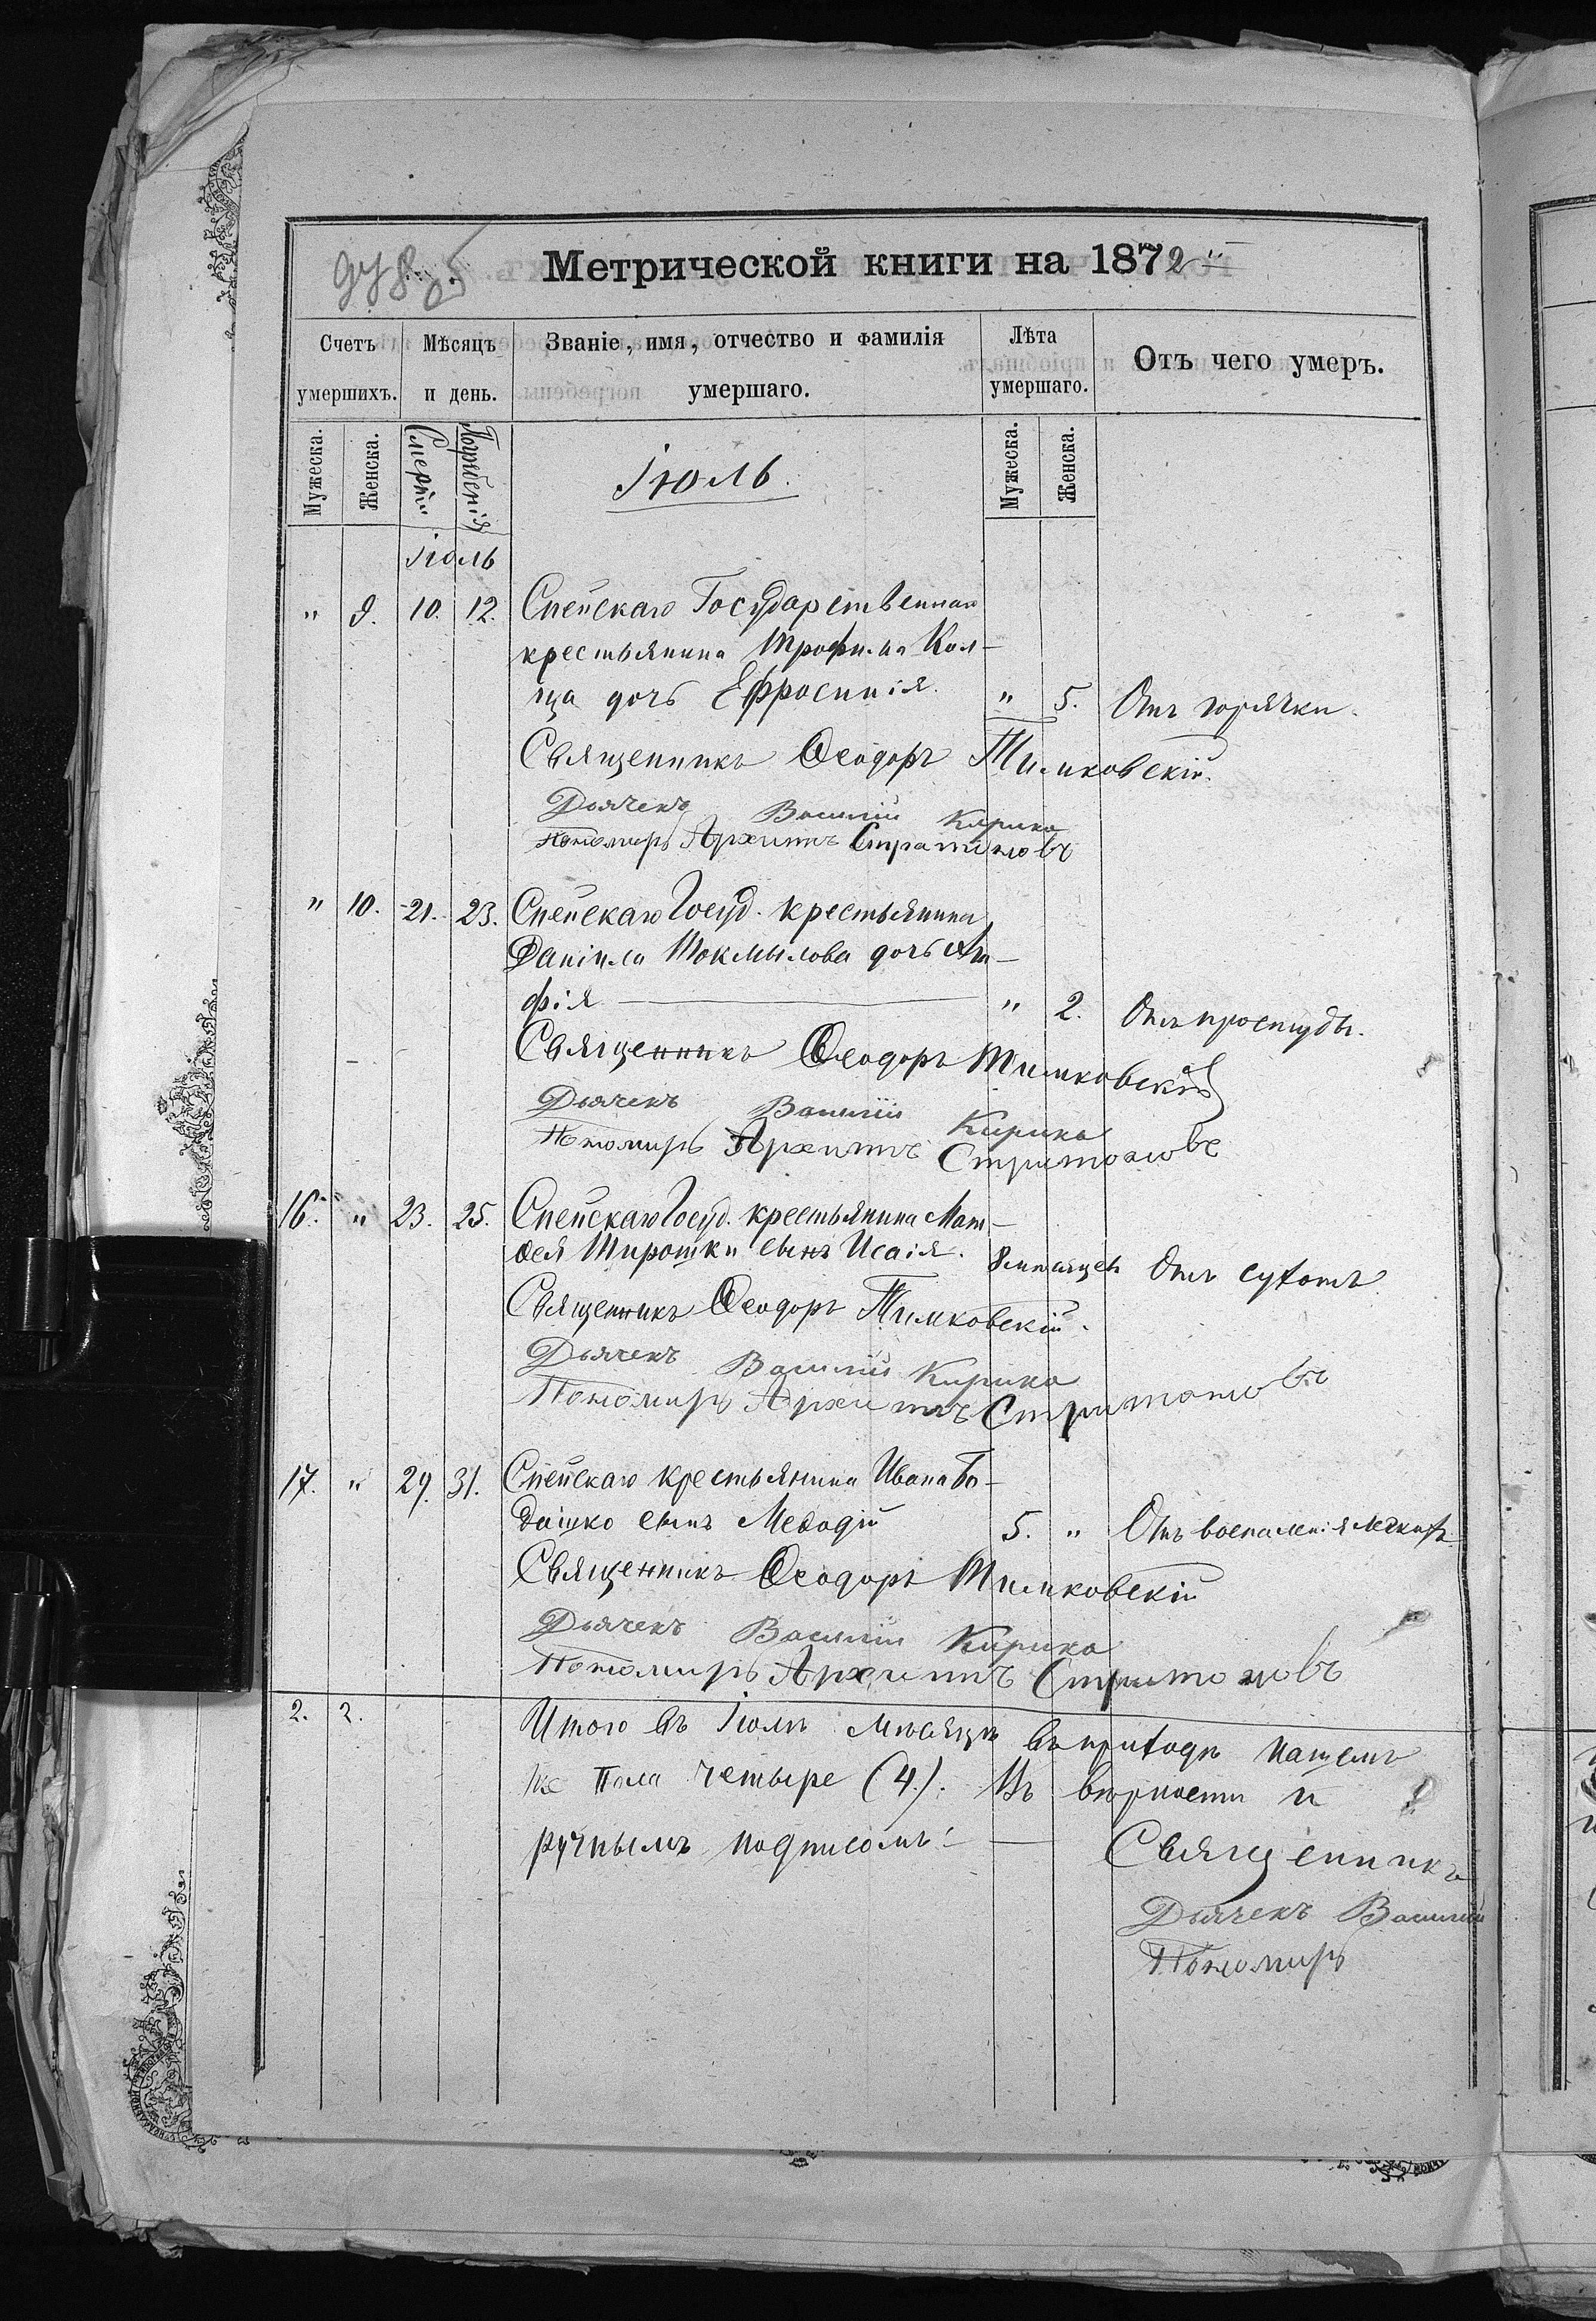 Метрической книги на 1872
Счетъ умершихъ.
Мѣсяцъ и день.
Званіе, имя, отчество и фамилія умершаго.
Лѣта умершаго.
Отъ чего умеръ.
Мужеска. Женска. Смерти Погребенія
Іюль.
Мужеска. Женска.
Іюль
" 9. 10. 12. Спейскаго Государственнаго
крестьянина Трофима Кол-
ца дочь Ефросинія. " 5. Отъ горячки.
Священникъ Ѳеодоръ Тимковскій.
Дьячекъ Василій Кирика
Пономарь Архипъ Стратоновъ
" 10. 21. 23. Спейскаго Госуд. крестьянина
Даніила Токмылова дочь Аг-
фія " 2. Отъ простуды.
Священникъ Ѳеодоръ Тимковскій
Дьячекъ Василій Кирика
Пономарь Архипъ Стратоновъ
16. " 23. 25. Спейскаго Госуд. крестьянина Мат-
ѳея Тирошки сынъ Исаія. 8 мѣсяцевъ Отъ сухотъ
Священникъ Ѳеодоръ Тимковскій.
Дьячекъ Василій Кирика
Пономарь Архипъ Стратоновъ
17. " 29. 31. Спейскаго крестьянина Ивана Бо-
дашко сынъ Меѳодій 5. " Отъ воспаленія легкихъ.
Священникъ Ѳеодоръ Тимковскій
Дьячекъ Василій Кирика
Пономарь Архипъ Стратоновъ
2. 2. Итого въ Іюлѣ мѣсяцѣ въ приходѣ нашемъ
пола четыре (4). Въ вѣрности и
ручнымъ подписомъ:— Священникъ
Дьячекъ Василій
Пономарь